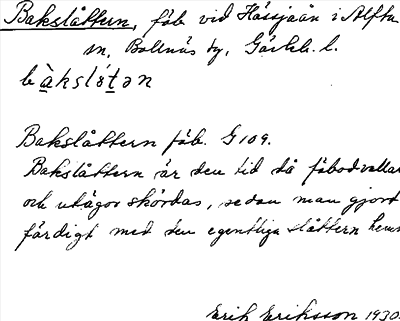 Bakslåttern, fäb. vid Hässjaån i Alfta
sn, Bollnäs dg, Gävleb. l.
bàkslɔtən
Bakslåttern fäb. G109.
Bakslåttern är den tid då fäbodvallar
och utägor skördas, sedan man gjort
färdigt med den egentliga slåttern hem
Erik Eriksson 1930.